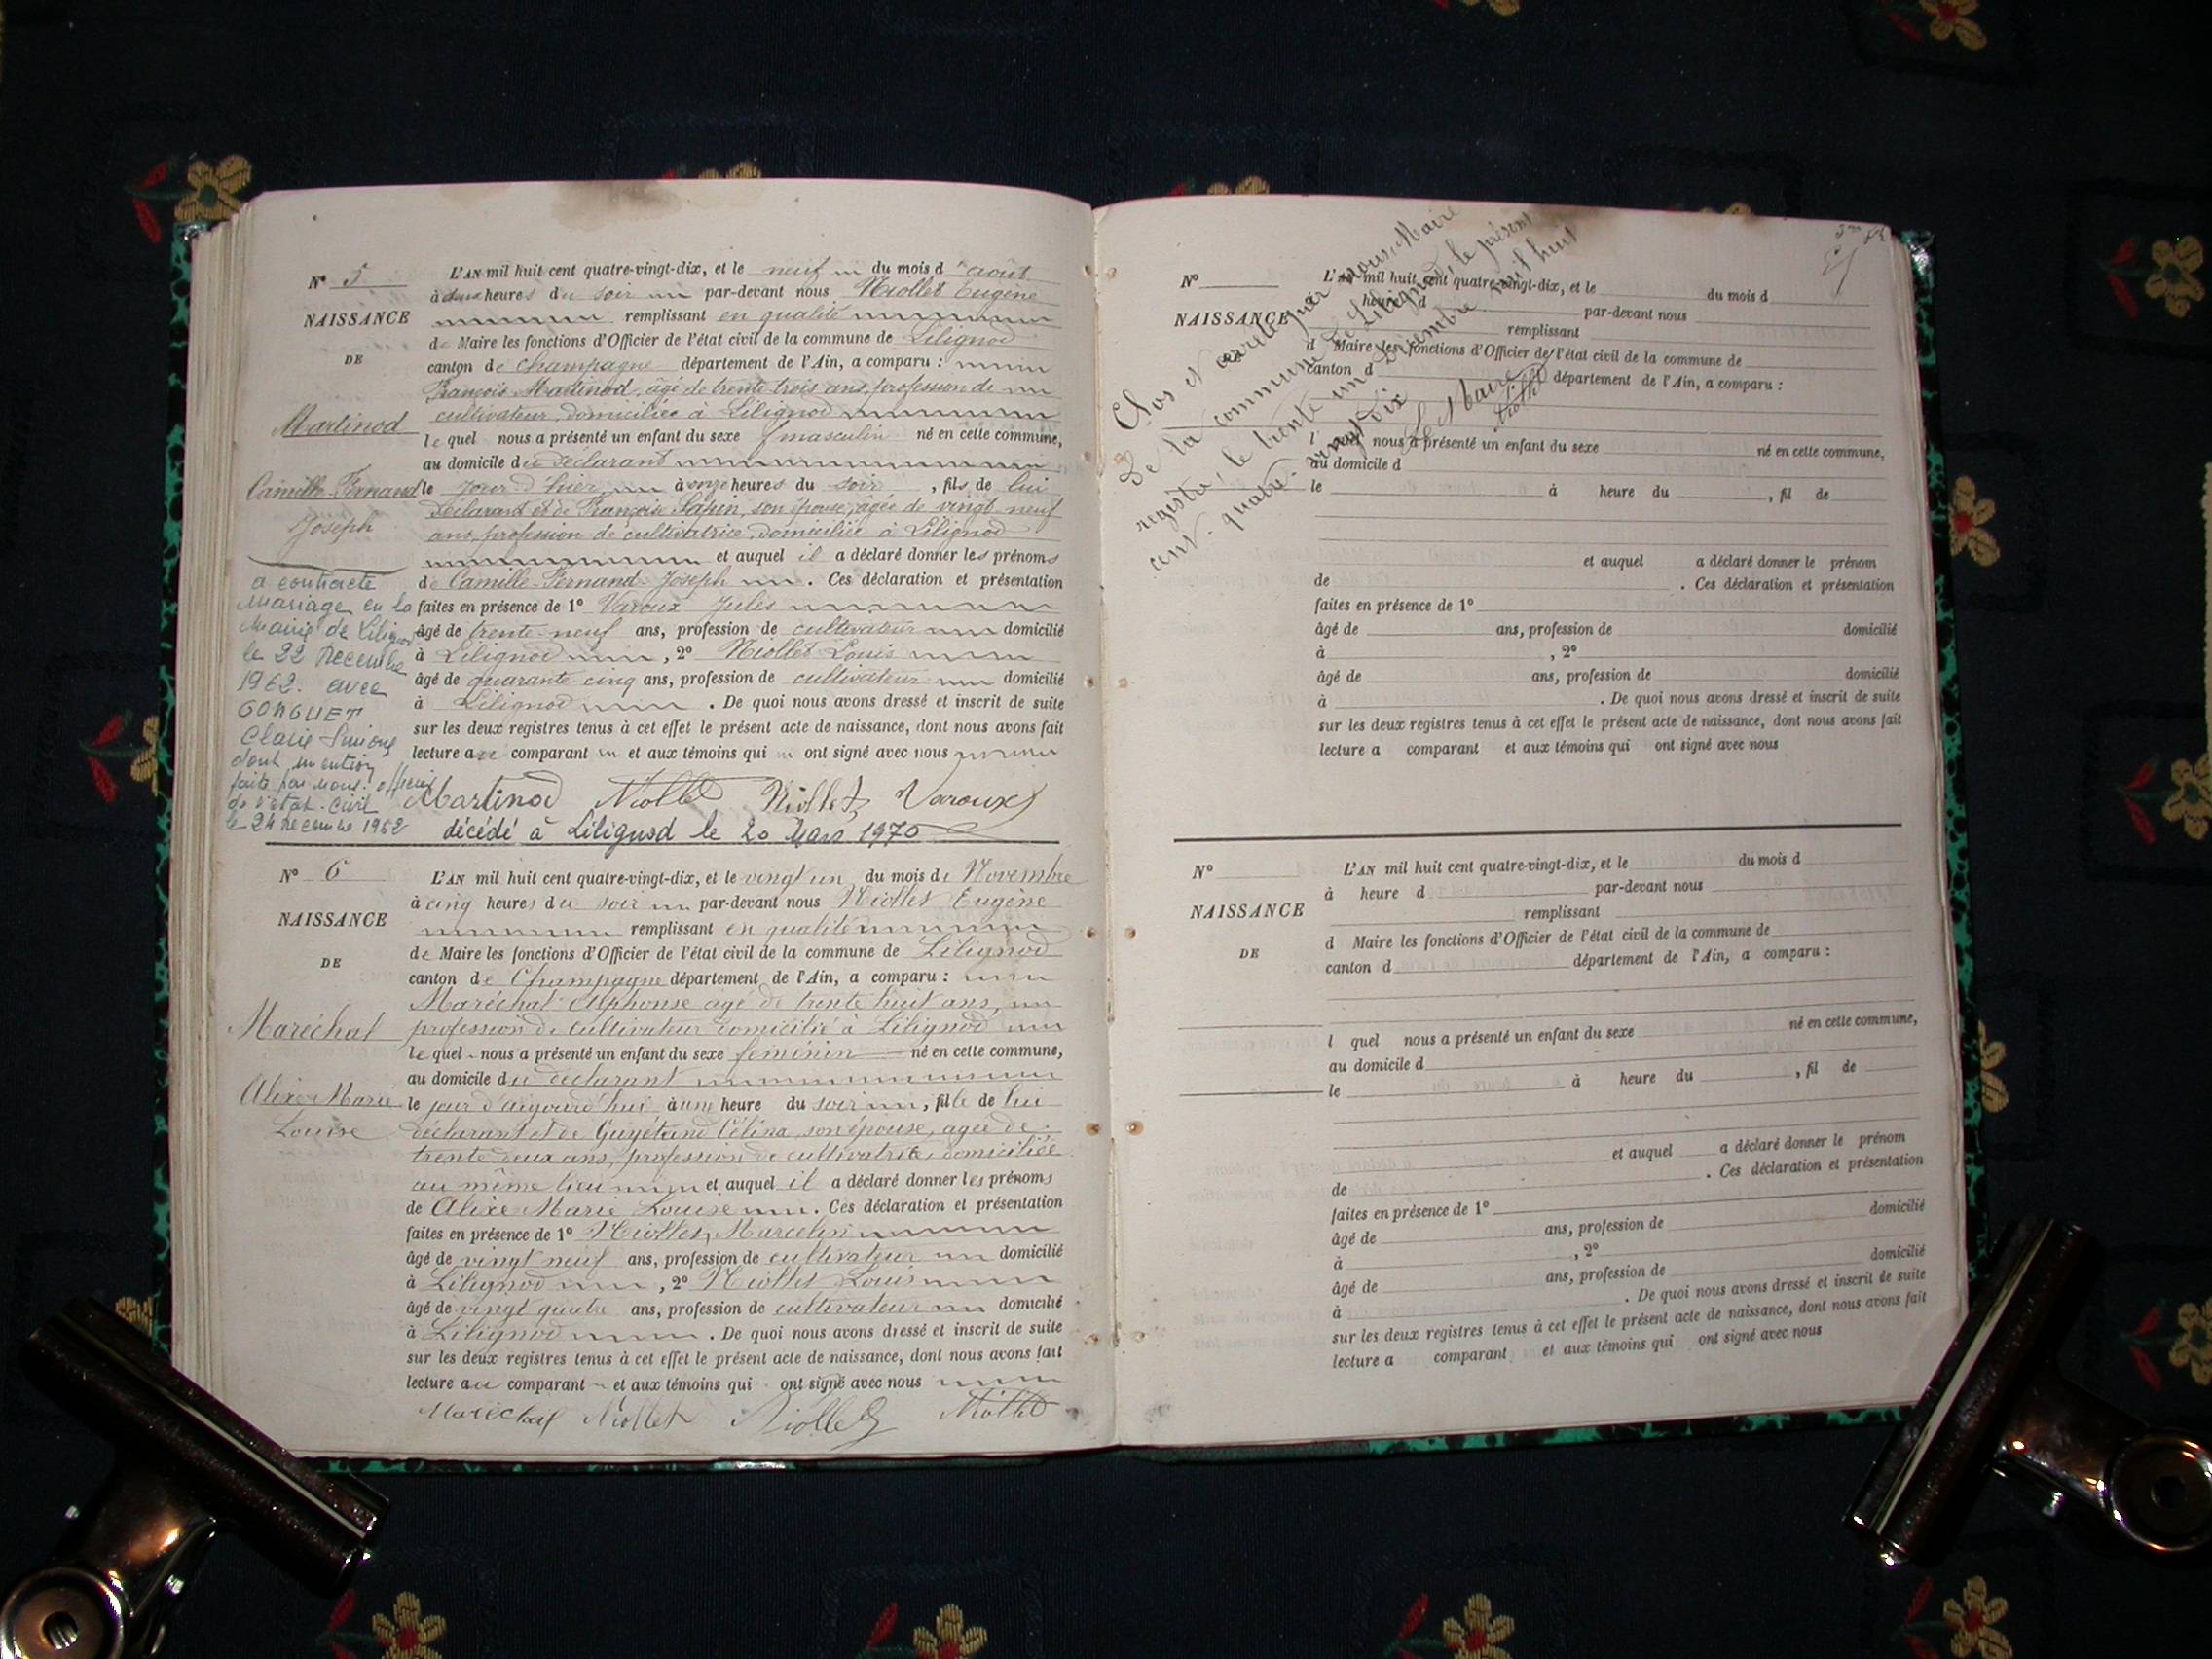 N° 5
NAISSANCE
DE
Martinod
Camille-Fernand
Joseph
a contracté
mariage en la
Mairie de Lilignod
le 22 Décembre
1962. avec
GONGUET
Claire Simone
dont mention
faite par nous. officier
de l'état-civil
le 24 décembre 1962
L'AN mil huit cent quatre-vingt-dix, et le neuf du mois d'août
à deux heures du soir par-devant nous Niollet Eugène
remplissant en qualité
de Maire les fonctions d'Officier de l'état civil de la commune de Lilignod
canton de Champagne département de l'Ain, a comparu :
François Martinod, âgé de trente trois ans, profession de
cultivateur, domicilié à Lilignod
lequel nous a présenté un enfant du sexe masculin né en cette commune,
au domicile du déclarant
le jour d'hier à onze heures du soir, fils de lui
déclarant et de Françoise Sapin, son épouse, âgée de vingt neuf
ans, profession de cultivatrice, domiciliée à Lilignod
et auquel il a déclaré donner les prénoms
de Camille-Fernand-Joseph. Ces déclaration et présentation
faites en présence de 1° Varoux Jules
âgé de trente-neuf ans, profession de cultivateur domicilié
à Lilignod, 2° Niollet Louis
âgé de quarante cinq ans, profession de cultivateur domicilié
à Lilignod. De quoi nous avons dressé et inscrit de suite
sur les deux registres tenus à cet effet le présent acte de naissance, dont nous avons fait
lecture au comparant et aux témoins qui ont signé avec nous
Martinod Niollet Niollet Varoux
décédé à Lilignod le 20 Mars 1970
N° 6
NAISSANCE
DE
Maréchal
Alixe Marie
Louise
L'AN mil huit cent quatre-vingt-dix, et le vingt un du mois de Novembre
à cinq heures du soir par-devant nous Niollet Eugène
remplissant en qualité
de Maire les fonctions d'Officier de l'état civil de la commune de Lilignod
canton de Champagne département de l'Ain, a comparu :
Maréchal Alphonse âgé de trente huit ans,
profession de cultivateur domicilié à Lilignod
lequel nous a présenté un enfant du sexe féminin né en cette commune,
au domicile du déclarant
le jour d'aujourd'hui à une heure du soir, fille de lui
déclarant et de Guyétand Célina, son épouse, agée de
trente deux ans, profession de cultivatrice domiciliée
au même lieu et auquel il a déclaré donner les prénoms
de Alixe Marie Louise. Ces déclaration et présentation
faites en présence de 1° Niollet Marcelin
âgé de vingt neuf ans, profession de cultivateur domicilié
à Lilignod, 2° Niollet Louis
âgé de vingt quatre ans, profession de cultivateur domicilié
à Lilignod. De quoi nous avons dressé et inscrit de suite
sur les deux registres tenus à cet effet le présent acte de naissance, dont nous avons fait
lecture au comparant et aux témoins qui ont signé avec nous
Maréchal Niollet Niollet Niollet
Clos et arrêté par nous, Maire
de la commune de Lilignod, le présent
registre, le trente un Décembre mil huit
cent quatre-vingt-dix
Le Maire
N°
NAISSANCE
L'AN mil huit cent quatre-vingt-dix, et le du mois d
heure d par-devant nous
remplissant
d Maire les fonctions d'Officier de l'état civil de la commune de
canton d département de l'Ain, a comparu :
l quel nous a présenté un enfant du sexe né en cette commune,
au domicile d
le à heure du , fil de
et auquel a déclaré donner le prénom
de . Ces déclaration et présentation
faites en présence de 1°
âgé de ans, profession de domicilié
à , 2°
âgé de ans, profession de domicilié
à . De quoi nous avons dressé et inscrit de suite
sur les deux registres tenus à cet effet le présent acte de naissance, dont nous avons fait
lecture a comparant et aux témoins qui ont signé avec nous
N°
NAISSANCE
DE
L'AN mil huit cent quatre-vingt-dix, et le du mois d
à heure d par-devant nous
remplissant
d Maire les fonctions d'Officier de l'état civil de la commune de
canton d département de l'Ain, a comparu :
l quel nous a présenté un enfant du sexe né en cette commune,
au domicile d
le à heure du , fil de
et auquel a déclaré donner le prénom
de . Ces déclaration et présentation
faites en présence de 1°
âgé de ans, profession de domicilié
à , 2°
âgé de ans, profession de domicilié
à . De quoi nous avons dressé et inscrit de suite
sur les deux registres tenus à cet effet le présent acte de naissance, dont nous avons fait
lecture a comparant et aux témoins qui ont signé avec nous